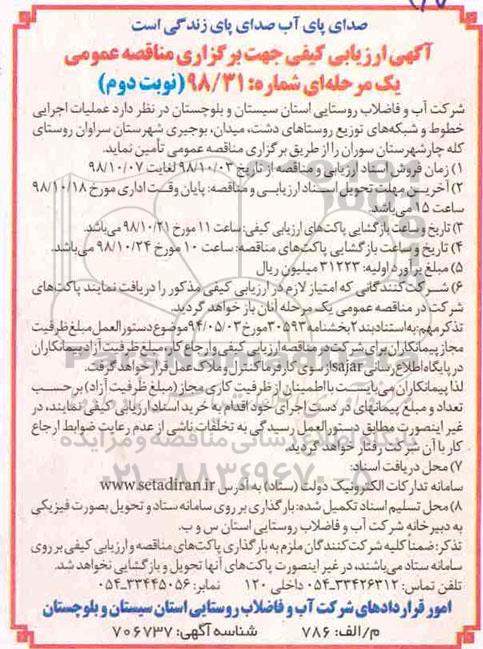 صدای پای آب صدای پای زندگی است
آگهی ارزیابی کیفی جهت برگزاری مناقصه عمومی
یک مرحله‌ای شماره: ۹۸/۳۱ (نوبت دوم)
شرکت آب و فاضلاب روستایی استان سیستان و بلوچستان در نظر دارد عملیات اجرایی
خطوط و شبکه‌های توزیع روستاهای دشت، میدان، بوجیری شهرستان سراوان روستای
کله چار شهرستان سوران را از طریق برگزاری مناقصه عمومی تأمین نماید.
۱) زمان فروش اسناد ارزیابی و مناقصه از تاریخ ۹۸/۱۰/۰۳ لغایت ۹۸/۱۰/۰۷
۲) آخریـن مهلت تحویل اسـناد ارزیابـی و مناقصه: پایان وقـت اداری مورخ ۹۸/۱۰/۱۸
ساعت ۱۵ می‌باشد.
۳) تاریخ و ساعت بازگشایی پاکت‌های ارزیابی کیفی: ساعت ۱۱ مورخ ۹۸/۱۰/۲۱ می‌باشد.
۴) تاریخ و ساعت بازگشایی پاکت‌های مناقصه: ساعت ۱۰ مورخ ۹۸/۱۰/۲۴ می‌باشد.
۵) مبلغ برآورد اولیه: ۳۱۲۲۳ میلیون ریال
۶) شـرکت کنندگانی که امتیاز لازم در ارزیابی کیفی مذکور را دریافت نمایند پاکت‌های
شرکت در مناقصه عمومی یک مرحله آنان باز خواهد گردید.
تذکر مهم: به استناد بند ۲ بخشنامه ۳۰۵۹۳ مورخ ۹۴/۰۵/۰۳ موضوع دستورالعمل مبلغ ظرفیت
مجاز پیمانکاران برای شرکت در مناقصه ارزیابی کیفی و ارجاع کار، مبلغ ظرفیت آزاد پیمانکاران
در پایگاه اطلاع رسانی sajar از سوی کارفرما کنترل و ملاک عمل قرار خواهد گرفت.
لذا پیمانکاران می‌بایست با اطمینان از ظرفیت کاری مجاز (مبلغ ظرفیت آزاد) بر حسب
تعداد و مبلغ پیمانهای در دست اجرای خود اقدام به خرید اسناد ارزیابی کیفی نمایند، در
غیر اینصورت مطابق دستورالعمل رسیدگی به تخلفات ناشی از عدم رعایت ضوابط ارجاع
کار با آن شرکت رفتار خواهد گردید.
۷) محل دریافت اسناد:
سامانه تدارکات الکترونیک دولت (ستاد) به آدرس www.setadiran.ir
۸) محل تسلیم اسناد تکمیل شده: بارگذاری بر روی سامانه ستاد و تحویل بصورت فیزیکی
به دبیرخانه شرکت آب و فاضلاب روستایی استان س و ب.
تذکر: ضمناً کلیه شرکت کنندگان ملزم به بارگذاری پاکت‌های مناقصه و ارزیابی کیفی بر روی
سامانه ستاد می‌باشند، در غیر اینصورت پاکت‌های آنها تحویل و بازگشایی نخواهد شد.
تلفن تماس: ۳۳۴۲۶۳۱۲-۰۵۴ داخلی ۱۲۰ نمابر: ۳۳۴۴۵۰۵۶-۰۵۴
امور قراردادهای شرکت آب و فاضلاب روستایی استان سیستان و بلوچستان
م/الف: ۷۸۶ شناسه آگهی: ۷۰۶۷۳۷